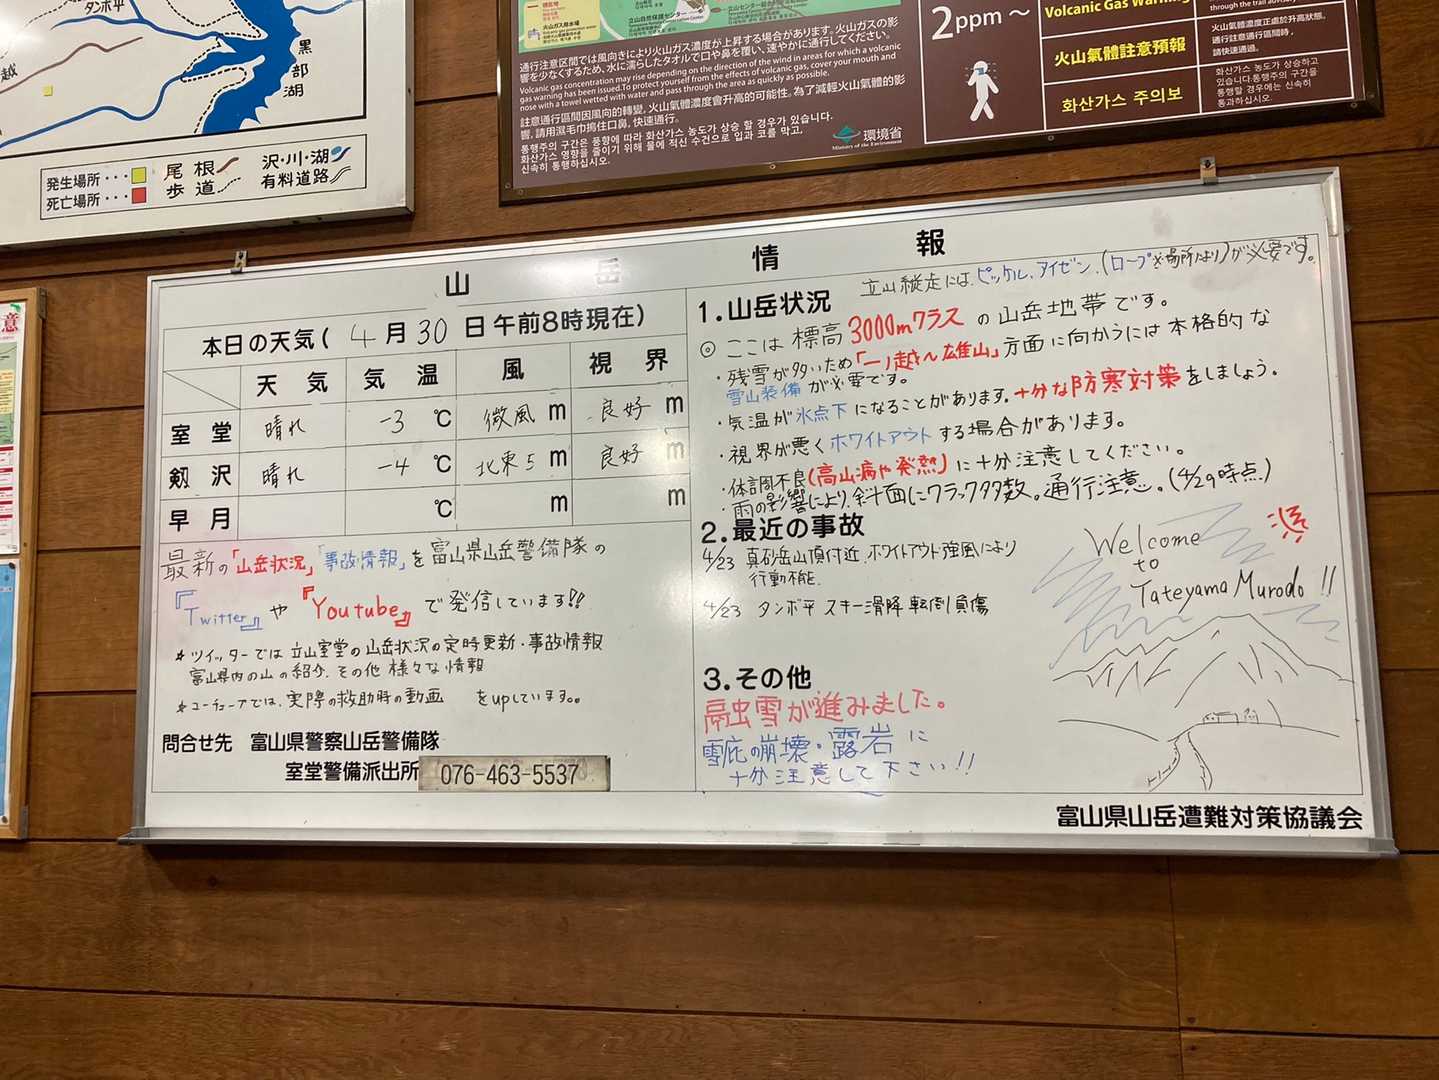 タンボ平
黒部湖
越
発生場所・・・
死亡場所・・・
尾根
歩道
沢・川・湖
有料道路
通行注意区間では風向きにより火山ガス濃度が上昇する場合があります。火山ガスの影
響を少なくするため、水に濡らしたタオルで口や鼻を覆い、速やかに通行してください。
Volcanic gas concentration may rise depending on the direction of the wind in areas for which a volcanic
gas warning has been issued.To protect yourself from the effects of volcanic gas, cover your mouth and
nose with a towel wetted with water and pass through the area as quickly as possible.
註意通行區間因風向的轉變，火山氣體濃度會升高的可能性。為了減輕火山氣體的影
響，請用濕毛巾摀住口鼻，快速通行。
통행주의 구간은 풍향에 따라 화산가스 농도가 상승 할 경우가 있습니다.
화산가스 영향을 줄이기 위해 물에 적신 수건으로 입과 코를 막고,
신속히 통행하십시오.
環境省
Ministry of the Environment
2ppm～
Volcanic Gas Warning
through the trail advisory
火山氣體註意預報
火山氣體濃度正處於升高狀態。
通行註意通行區間時，
請快速通過。
화산가스 주의보
화산가스 농도가 상승하고
있습니다.통행주의 구간을
통행할 경우에는 신속히
통과하십시오.
意
山岳情報
本日の天気(4月30日午前8時現在)
天気 気温 風 視界
室堂 晴れ -3℃ 微風m 良好m
剱沢 晴れ -4℃ 北東5m 良好m
早月 ℃ m m
最新の「山岳状況」「事故情報」を富山県山岳警備隊の
『Twitter』や『Youtube』で発信しています!!
*ツイッターでは立山室堂の山岳状況の定時更新・事故情報
富山県内の山の紹介、その他様々な情報
*ユーチューブでは、実際の救助時の動画 をupしています。
問合せ先 富山県警察山岳警備隊
室堂警備派出所 076-463-5537
1.山岳状況
立山縦走には、ピッケル、アイゼン、(ロープ※場所により)が必要です。
◎ここは標高3000mクラスの山岳地帯です。
・残雪が多いため「一ノ越～雄山」方面に向かうには本格的な
雪山装備が必要です。
・気温が氷点下になることがあります。十分な防寒対策をしましょう。
・視界が悪くホワイトアウトする場合があります。
・体調不良(高山病や発熱)に十分注意してください。
・雨の影響により、斜面にクラック多数。通行注意。(4/29時点)
2.最近の事故
4/23 真砂岳山頂付近、ホワイトアウト強風により
行動不能
4/23 タンボ平 スキー滑降 転倒負傷
3.その他
融雪が進みました。
雪庇の崩壊・露岩に
十分注意して下さい!!
Welcome
to
Tateyama Murodo!!
富山県山岳遭難対策協議会